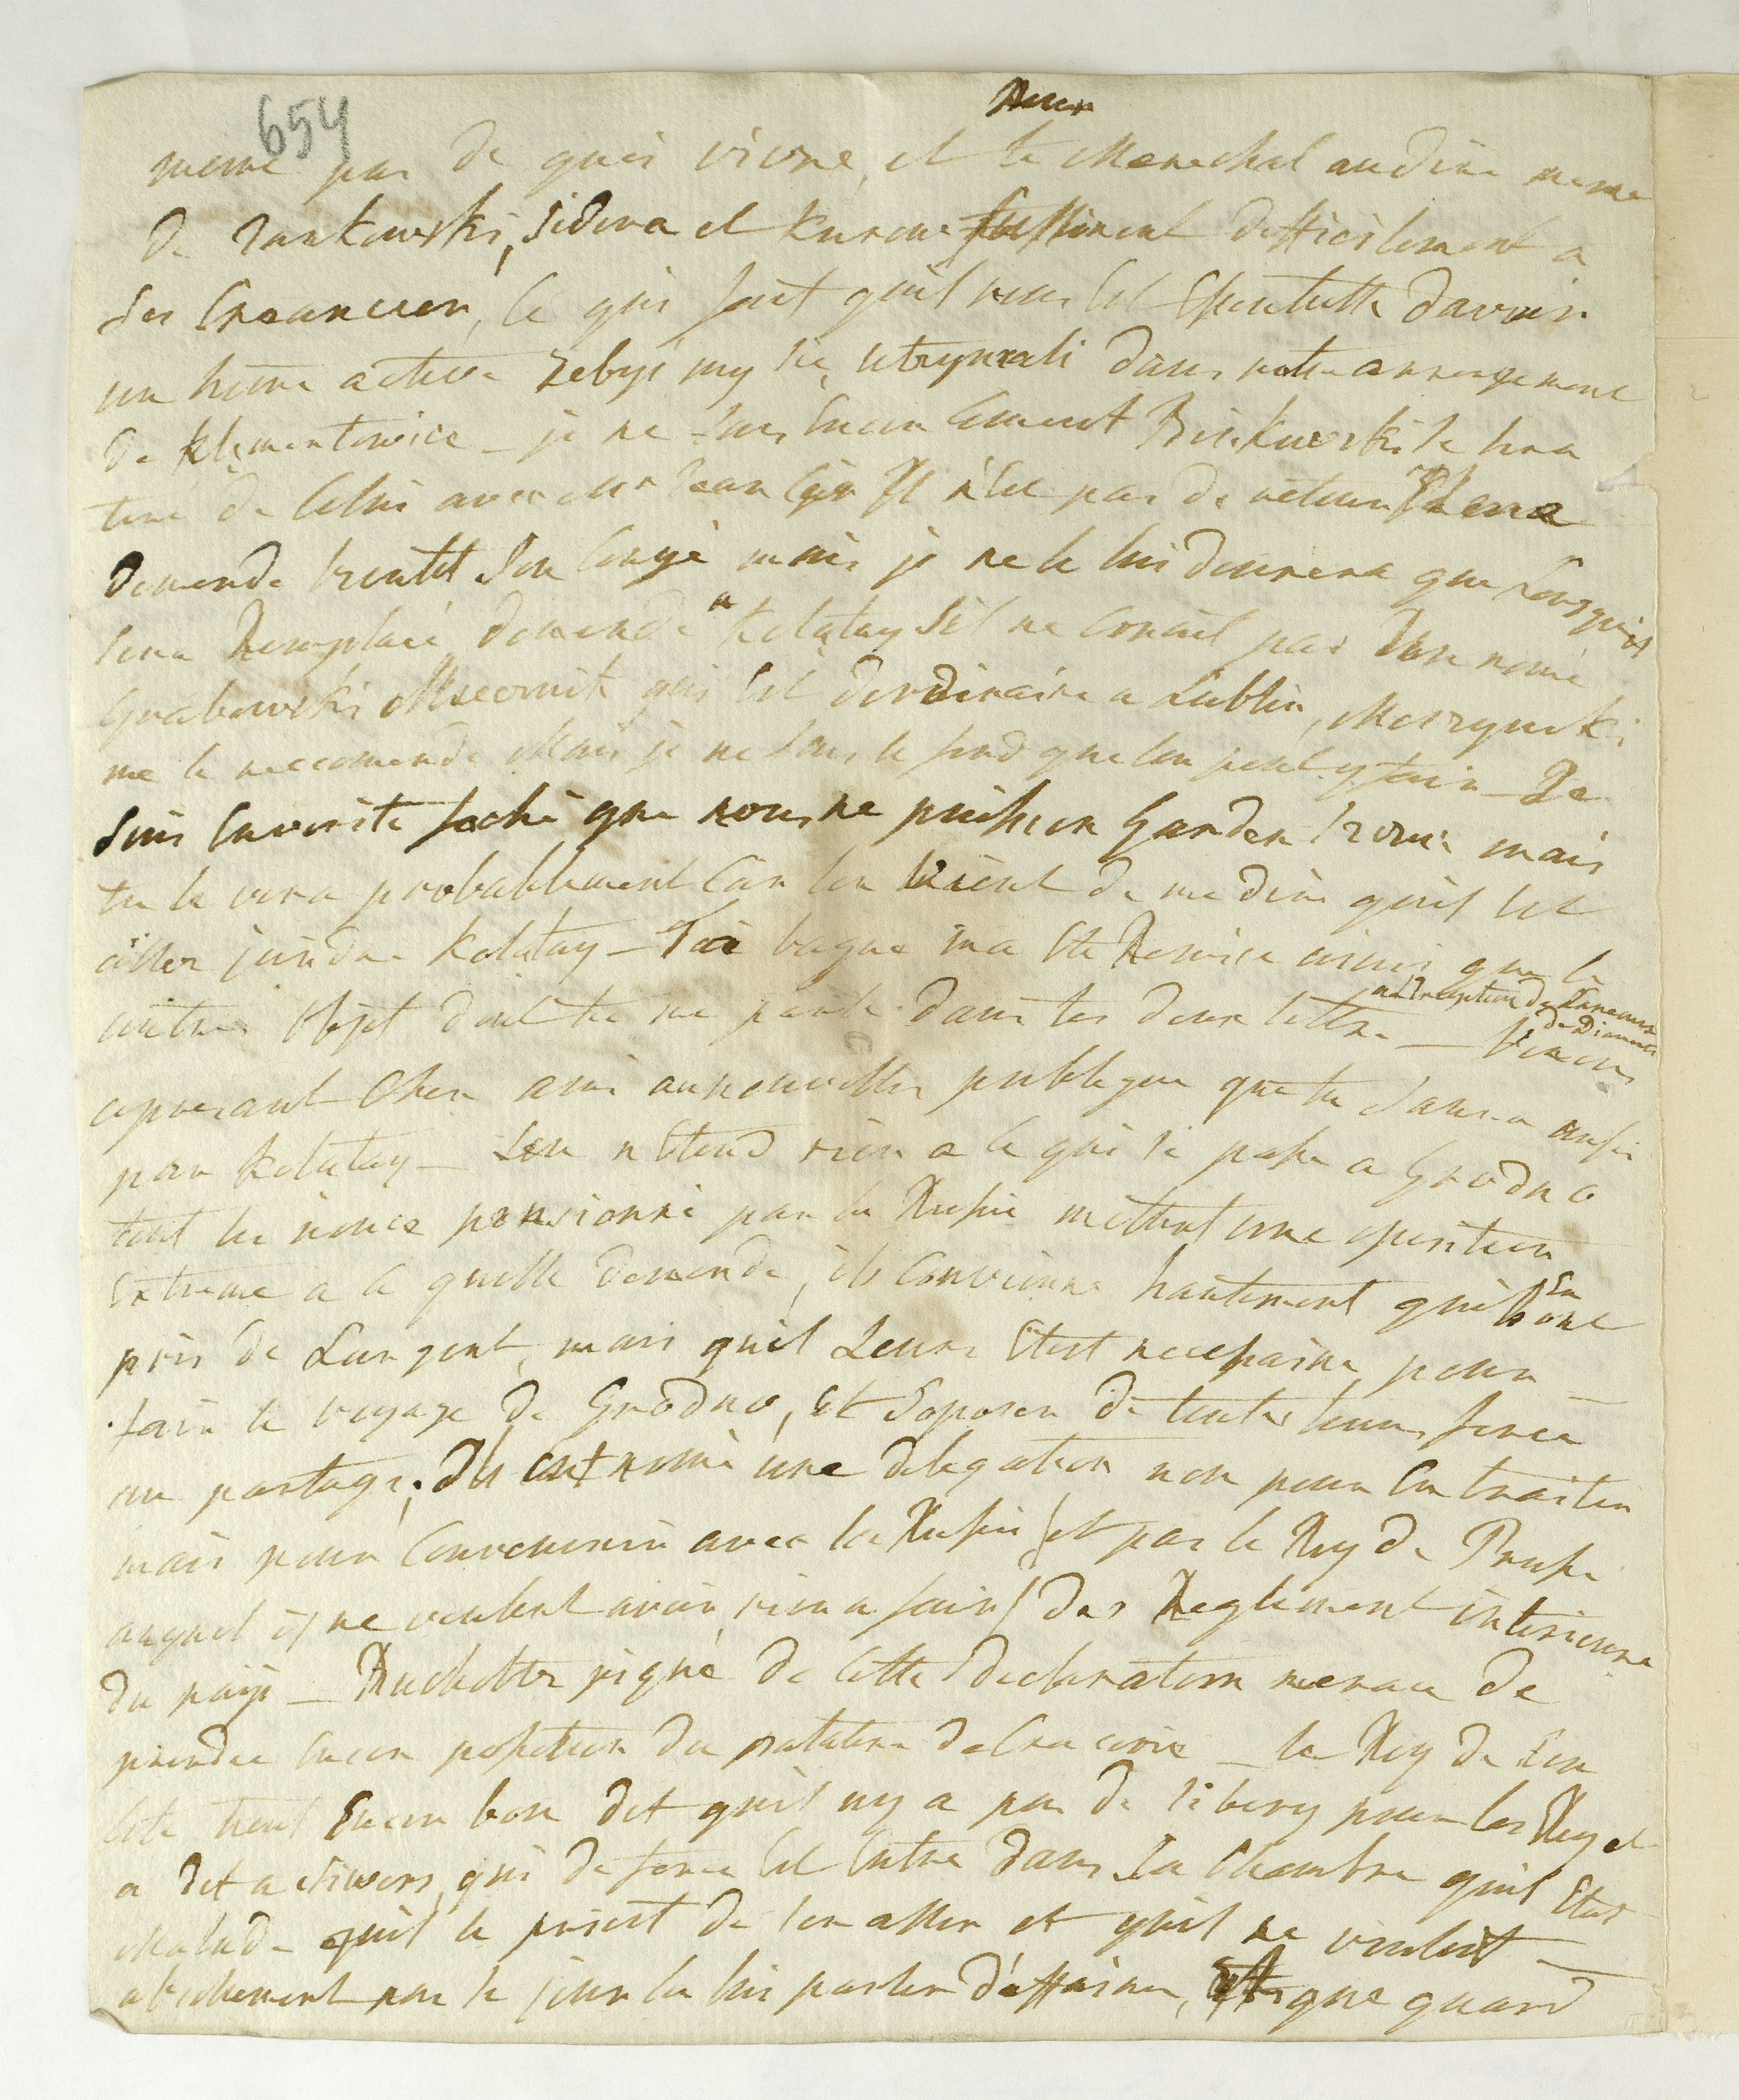 654
meme pas de quoi vivre, et le Marechal au dire meme
de Jankowski, Sidora et Kurow suffiront difficilement a
ses Creancier, ce qui fait quil nous est Essentielle davoir
un home active zebys my sie utrzymali dans notre arrangement
de Klementowice – je ne sais encor coment Binkowski se sera
tiré de celui avec Mr car il n'est pas de retour
demande bientot son congé mais je ne le lui donnerai que Lorsquil
sera Remplacé demende a Kolataÿ sil ne conoit pas un nomé
Grabowski Mecenik qui est dordinaire a Lublin, Moszynski
me le reccomende Mais je ne sais le fond que lon peut y faire – Je
suis en verité faché que nous ne puission Garder mais
tu le vera probablement car lon vient de me dire quil est
aller joindre Kolataÿ – Ta bague ma été Remise ainsi que le
autres objet dont tu me parle dans tes deux lettre a L'exception du Panneaux de Diamants – Venons
apresant Cher ami au nouvelles publique que tu saura aussi
par Kolataÿ – Lon n'Etend rien a ce qui se passe a Grodno
tout les nonce pensionné par la Russie mettent une oposition
Extreme a ce quelle demende, ils convienne hautement quils En ont
pris de Largent, mais quil Leurs Etoit necessaire pour
faire le voyage de Grodno, et soposer de toutes leurs force
au partage; Ils ont nomé une délegation non pour en traiter
mais pour Convenir avec la Russie (et pas le Roy de Prusse
auquel ils ne veulent avoir rien a faire) des Reglement interieure
du paÿs – Buchholtz piqué de cette declaration menace de
prendre encor possetion du palatina de Cracovie – le Roy de son
coté tient Encor bon dit quil ny a pas de Sibery pour les Roy et
a dit a Sivers, qui de force est Entré dans sa Chambre quil Etoit
Malade quil le prioit de sen aller et quil ne vouloit
absolument pas ce jour la lui parler d'affaires, que quand